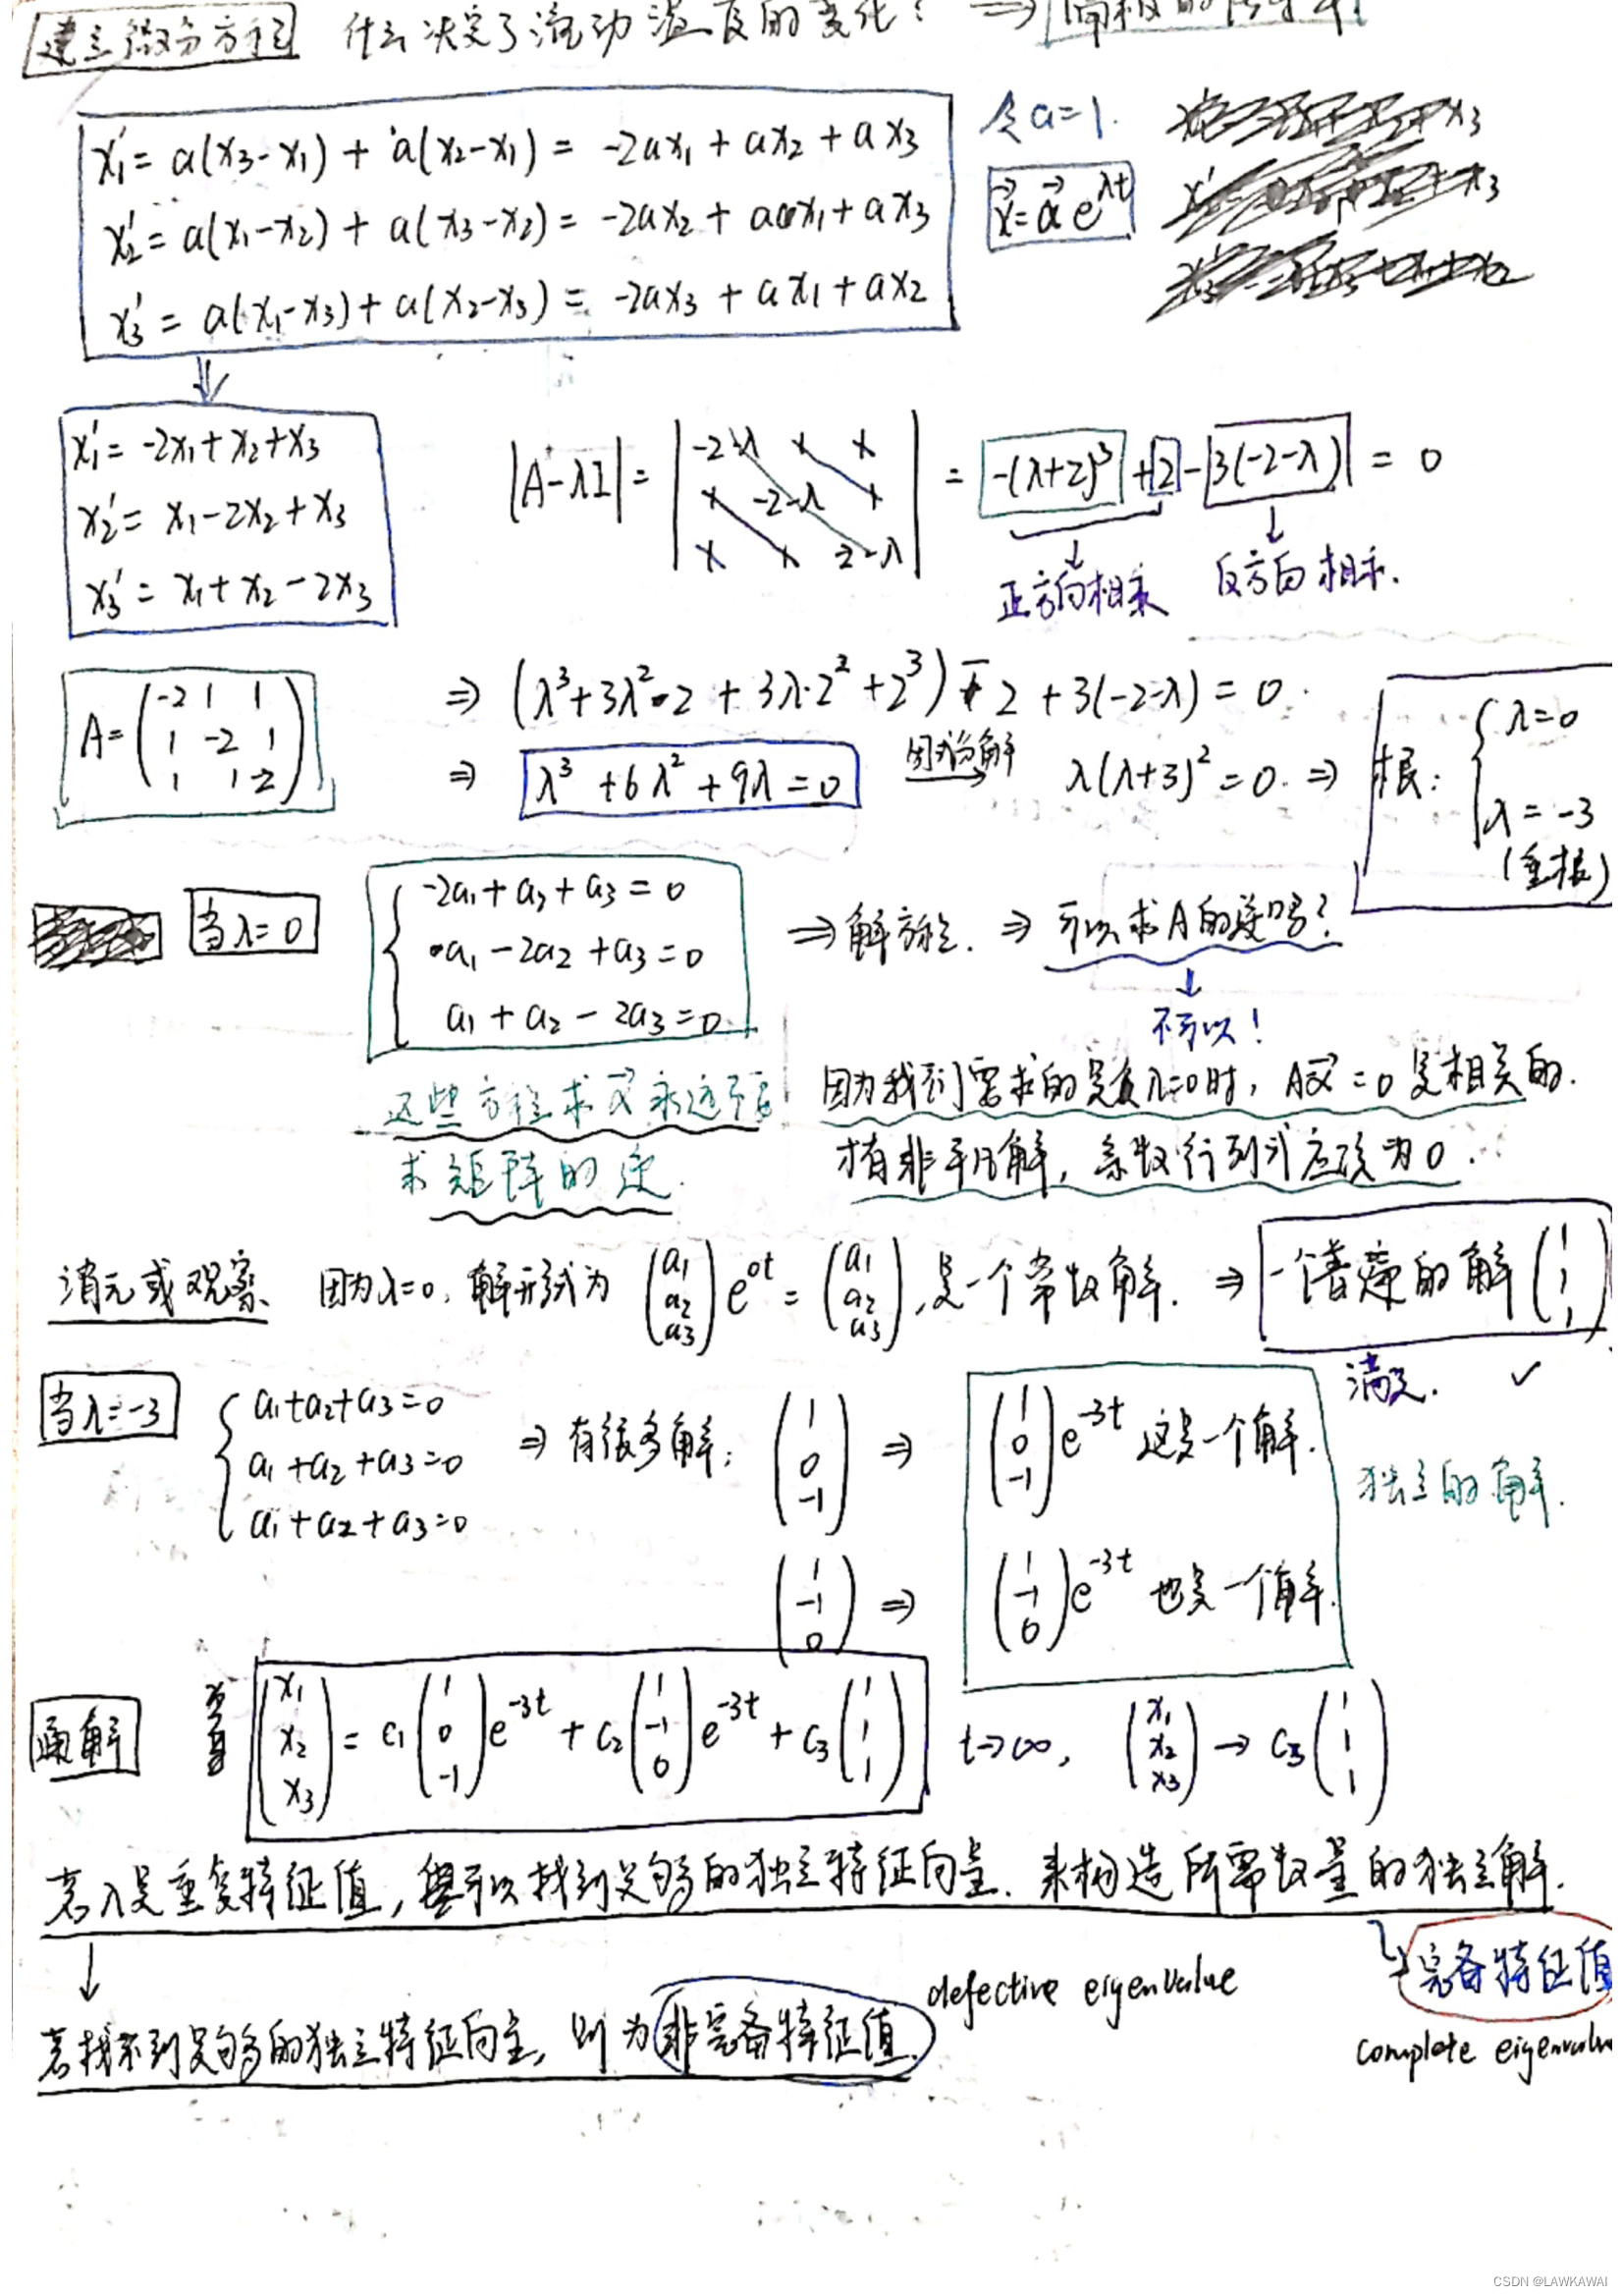 建立微分方程 什么决定了流动温度的变化? ⇒
x₁' = a(x₃-x₁) + a(x₂-x₁) = -2ax₁ + ax₂ + ax₃
x₂' = a(x₁-x₂) + a(x₃-x₂) = -2ax₂ + ax₁ + ax₃
x₃' = a(x₁-x₃) + a(x₂-x₃) = -2ax₃ + ax₁ + ax₂
令a=1.
x⃗ = α⃗ e^{λt}
x₁' = -2x₁ + x₂ + x₃
x₂' = x₁ - 2x₂ + x₃
x₃' = x₁ + x₂ - 2x₃
|A-λI| = | -2-λ x x ; x -2-λ x ; x x -2-λ | = -(λ+2)³ + 2 - 3(-2-λ) = 0
正方向相乘 反方向相乘.
A = (-2 1 1 ; 1 -2 1 ; 1 1 -2)
⇒ (λ³ + 3λ²·2 + 3λ·2² + 2³) - 2 + 3(-2-λ) = 0.
⇒ λ³ + 6λ² + 9λ = 0 因式分解 λ(λ+3)² = 0. ⇒ 根: { λ=0
λ = -3
(重根)
当λ=0
{ -2a₁ + a₂ + a₃ = 0
a₁ - 2a₂ + a₃ = 0
a₁ + a₂ - 2a₃ = 0
⇒ 解方程. ⇒ 可以求A的逆吗?
不可以!
这些方程求α⃗永远不要
求矩阵的逆.
因为我们需求的是λ=0时, Aα⃗=0是相关的.
才有非平凡解, 系数行列式应该为0.
消元或观察 因为λ=0, 解形式为 (a₁ a₂ a₃) e^{0t} = (a₁ a₂ a₃), 是一个常数解. ⇒ 一个普通的解 (1 1 1)
满足. ✓
当λ=-3
{ a₁+a₂+a₃=0
a₁+a₂+a₃=0
a₁+a₂+a₃=0
⇒ 有很多解: (1 0 -1) ⇒ (1 0 -1) e^{-3t} 这是一个解.
独立的解.
(1 -1 0) ⇒ (1 -1 0) e^{-3t} 也是一个解.
通解 (x₁ x₂ x₃) = c₁ (1 0 -1) e^{-3t} + c₂ (1 -1 0) e^{-3t} + c₃ (1 1 1) t→∞, (x₁ x₂ x₃) → c₃ (1 1 1)
若λ是重复特征值, 可以找到足够多的独立特征向量. 来构造所需数量的独立解.
完备特征值
complete eigenvalu
若找不到足够多的独立特征向量, 则为非完备特征值. defective eigenvalue
CSDN @LAWKAWAI